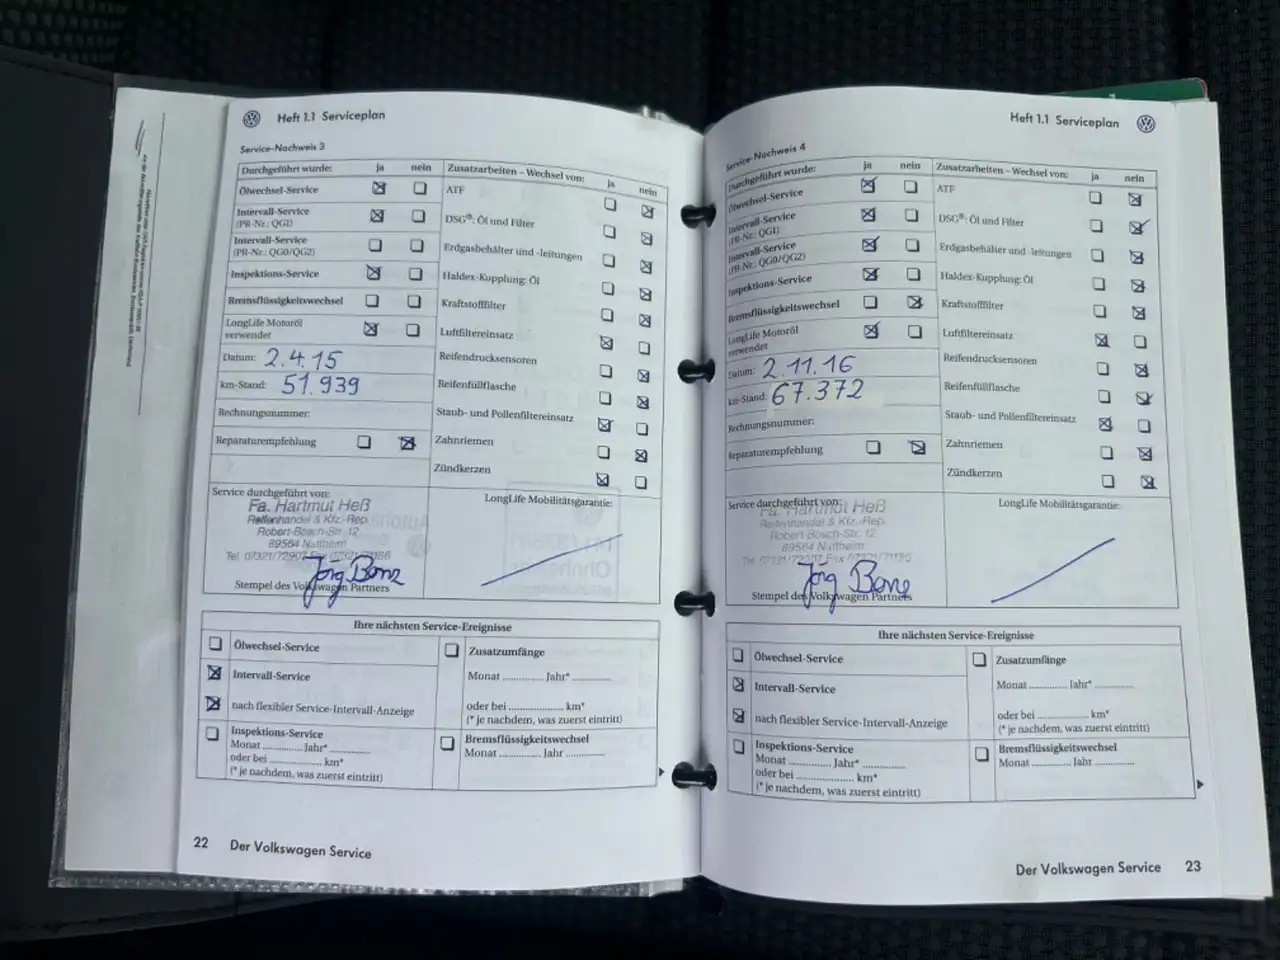 Heft 1.1 Serviceplan
Service-Nachweis 3
Durchgeführt wurde: ja nein
Ölwechsel-Service
Intervall-Service
(PR-Nr.: QGI)
Intervall-Service
(PR-Nr.: QG0/QG2)
Inspektions-Service
Bremsflüssigkeitswechsel
LongLife Motoröl
verwendet
Datum: 2.4.15
km-Stand: 51.939
Rechnungsnummer:
Reparaturempfehlung
Zusatzarbeiten – Wechsel von: ja nein
ATF
DSG®: Öl und Filter
Erdgasbehälter und -leitungen
Haldex-Kupplung: Öl
Kraftstofffilter
Luftfiltereinsatz
Reifendrucksensoren
Reifenfüllflasche
Staub- und Pollenfiltereinsatz
Zahnriemen
Zündkerzen
Service durchgeführt von:
Fa. Hartmut Heß
Reifenhandel & Kfz.-Rep.
Robert-Bosch-Str. 12
89564 Nattheim
Tel. 07321/72907 Fax 07321/71186
Jörg Benz
Stempel des Volkswagen Partners
LongLife Mobilitätsgarantie:
Ihre nächsten Service-Ereignisse
Ölwechsel-Service
Intervall-Service
nach flexibler Service-Intervall-Anzeige
Inspektions-Service
Monat ............ Jahr* ............
oder bei ........................ km*
(* je nachdem, was zuerst eintritt)
Zusatzumfänge
Monat ............ Jahr* ............
oder bei ........................ km*
(* je nachdem, was zuerst eintritt)
Bremsflüssigkeitswechsel
Monat ............ Jahr ............
22 Der Volkswagen Service
Heft 1.1 Serviceplan
Service-Nachweis 4
Durchgeführt wurde: ja nein
Ölwechsel-Service
Intervall-Service
(PR-Nr.: QGI)
Intervall-Service
(PR-Nr.: QG0/QG2)
Inspektions-Service
Bremsflüssigkeitswechsel
LongLife Motoröl
verwendet
Datum: 2.11.16
km-Stand: 67.372
Rechnungsnummer:
Reparaturempfehlung
Zusatzarbeiten – Wechsel von: ja nein
ATF
DSG®: Öl und Filter
Erdgasbehälter und -leitungen
Haldex-Kupplung: Öl
Kraftstofffilter
Luftfiltereinsatz
Reifendrucksensoren
Reifenfüllflasche
Staub- und Pollenfiltereinsatz
Zahnriemen
Zündkerzen
Service durchgeführt von:
Fa. Hartmut Heß
Reifenhandel & Kfz.-Rep.
Robert-Bosch-Str. 12
89564 Nattheim
Tel. 07321/72907 Fax 07321/71186
Jörg Benz
Stempel des Volkswagen Partners
LongLife Mobilitätsgarantie:
Ihre nächsten Service-Ereignisse
Ölwechsel-Service
Intervall-Service
nach flexibler Service-Intervall-Anzeige
Inspektions-Service
Monat ............ Jahr* ............
oder bei ........................ km*
(* je nachdem, was zuerst eintritt)
Zusatzumfänge
Monat ............ Jahr* ............
oder bei ........................ km*
(* je nachdem, was zuerst eintritt)
Bremsflüssigkeitswechsel
Monat ............ Jahr ............
Der Volkswagen Service 23